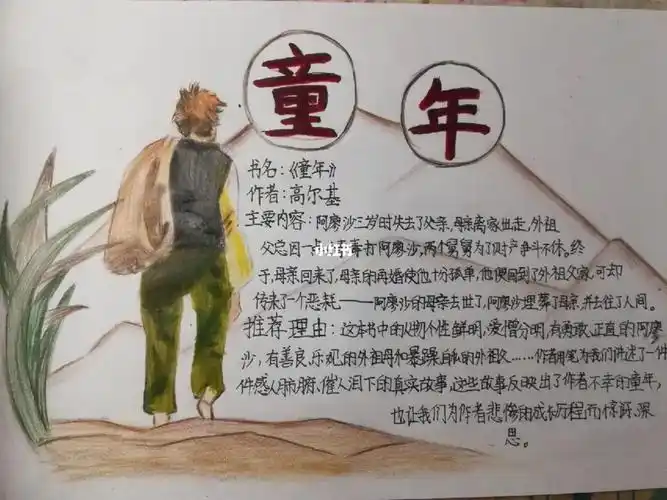 童年
书名:《童年》
作者:高尔基
主要内容:阿廖沙三岁时失去了父亲,母亲离家出走,外祖
父总因一点小事毒打阿廖沙,两个舅舅为了财产争斗不休。终
于,母亲回来了,母亲的再婚使他十分孤单,他便回到了外祖父家,可却
传来了一个恶耗——阿廖沙的母亲去世了,阿廖沙埋葬了母亲,并去往了人间。
推荐理由:这本书中的人物个性鲜明,爱憎分明,有勇敢、正直的阿廖
沙,有善良、乐观的外祖母和暴躁、自私的外祖父……作者用笔为我们讲述了一件
件感人肺腑、催人泪下的真实故事,这些故事反映出了作者不幸的童年,
也让我们为作者悲惨的成长历程而惊讶、深
思。
小红书